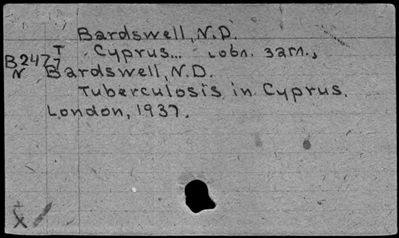 Bardswell, N.D.
T Cyprus...
B2477 Bardswell, N.D.
N
Tuberculosis in Cyprus.
London, 1937.
X